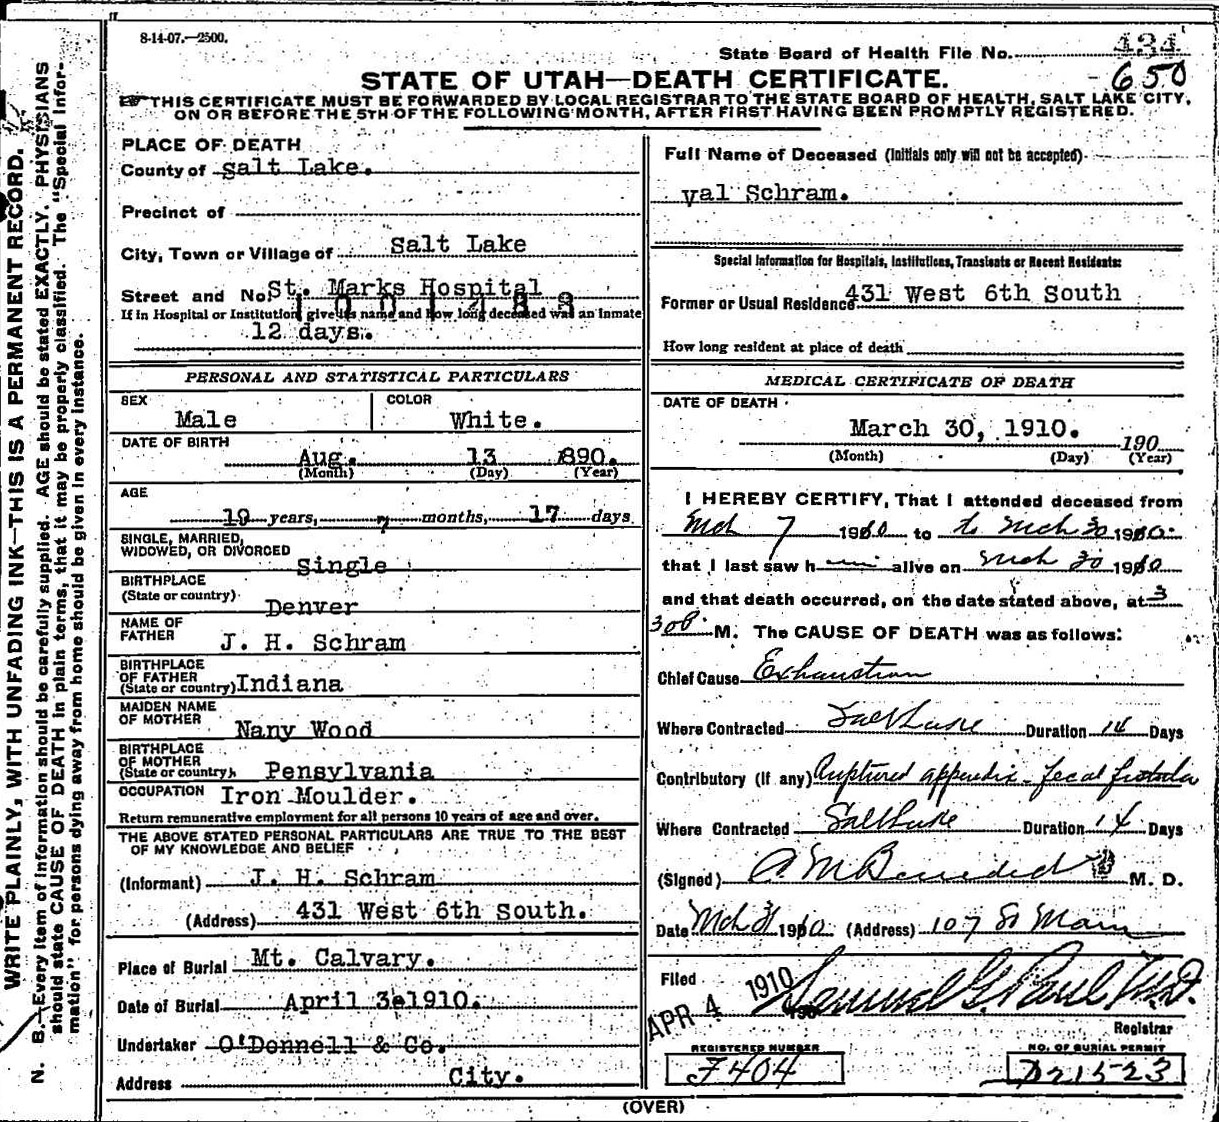 8-14-07.—2500.
State Board of Health File No. 434
650
STATE OF UTAH—DEATH CERTIFICATE.
THIS CERTIFICATE MUST BE FORWARDED BY LOCAL REGISTRAR TO THE STATE BOARD OF HEALTH, SALT LAKE CITY,
ON OR BEFORE THE 5TH OF THE FOLLOWING MONTH, AFTER FIRST HAVING BEEN PROMPTLY REGISTERED.
WRITE PLAINLY, WITH UNFADING INK—THIS IS A PERMANENT RECORD.
N. B.—Every item of information should be carefully supplied. AGE should be stated EXACTLY. PHYSICIANS
should state CAUSE OF DEATH in plain terms, that it may be properly classified. The "Special Infor-
mation" for persons dying away from home should be given in every instance.
PLACE OF DEATH
County of Salt Lake.
Precinct of
City, Town or Village of Salt Lake
Street and No. St. Marks Hospital
If in Hospital or Institution give its name and how long deceased was an Inmate
12 days.
PERSONAL AND STATISTICAL PARTICULARS
SEX Male
COLOR White.
DATE OF BIRTH
Aug. 13 890.
(Month) (Day) (Year)
AGE
19 years, 7 months, 17 days
SINGLE, MARRIED,
WIDOWED, OR DIVORCED Single
BIRTHPLACE
(State or country) Denver
NAME OF
FATHER J. H. Schram
BIRTHPLACE
OF FATHER
(State or country) Indiana
MAIDEN NAME
OF MOTHER Nany Wood
BIRTHPLACE
OF MOTHER
(State or country) Pensylvania
OCCUPATION Iron Moulder.
Return remunerative employment for all persons 10 years of age and over.
THE ABOVE STATED PERSONAL PARTICULARS ARE TRUE TO THE BEST
OF MY KNOWLEDGE AND BELIEF
(Informant) J. H. Schram
(Address) 431 West 6th South.
Place of Burial Mt. Calvary.
Date of Burial April 3 1910.
Undertaker O'Donnell & Co.
Address City.
Full Name of Deceased (Initials only will not be accepted)
Val Schram.
Special Information for Hospitals, Institutions, Transients or Recent Residents:
Former or Usual Residence 431 West 6th South
How long resident at place of death
MEDICAL CERTIFICATE OF DEATH
DATE OF DEATH
March 30, 1910. 190
(Month) (Day) (Year)
I HEREBY CERTIFY, That I attended deceased from
Mch 7 1910 to to Mch 30 1910
that I last saw him alive on Mch 30 1910
and that death occurred, on the date stated above, at 3
30 P. M. The CAUSE OF DEATH was as follows:
Chief Cause Exhaustion
Where Contracted Salt Lake Duration 14 Days
Contributory (if any) Ruptured appendix - fecal fistula
Where Contracted Salt Lake Duration 14 Days
(Signed) A M Benedict M. D.
Date Mch 31 1910 (Address) 107 So Main
Filed APR 4 1910 Samuel G. Paul M.D.
Registrar
REGISTERED NUMBER
F404
NO. OF BURIAL PERMIT
D21523
(OVER)